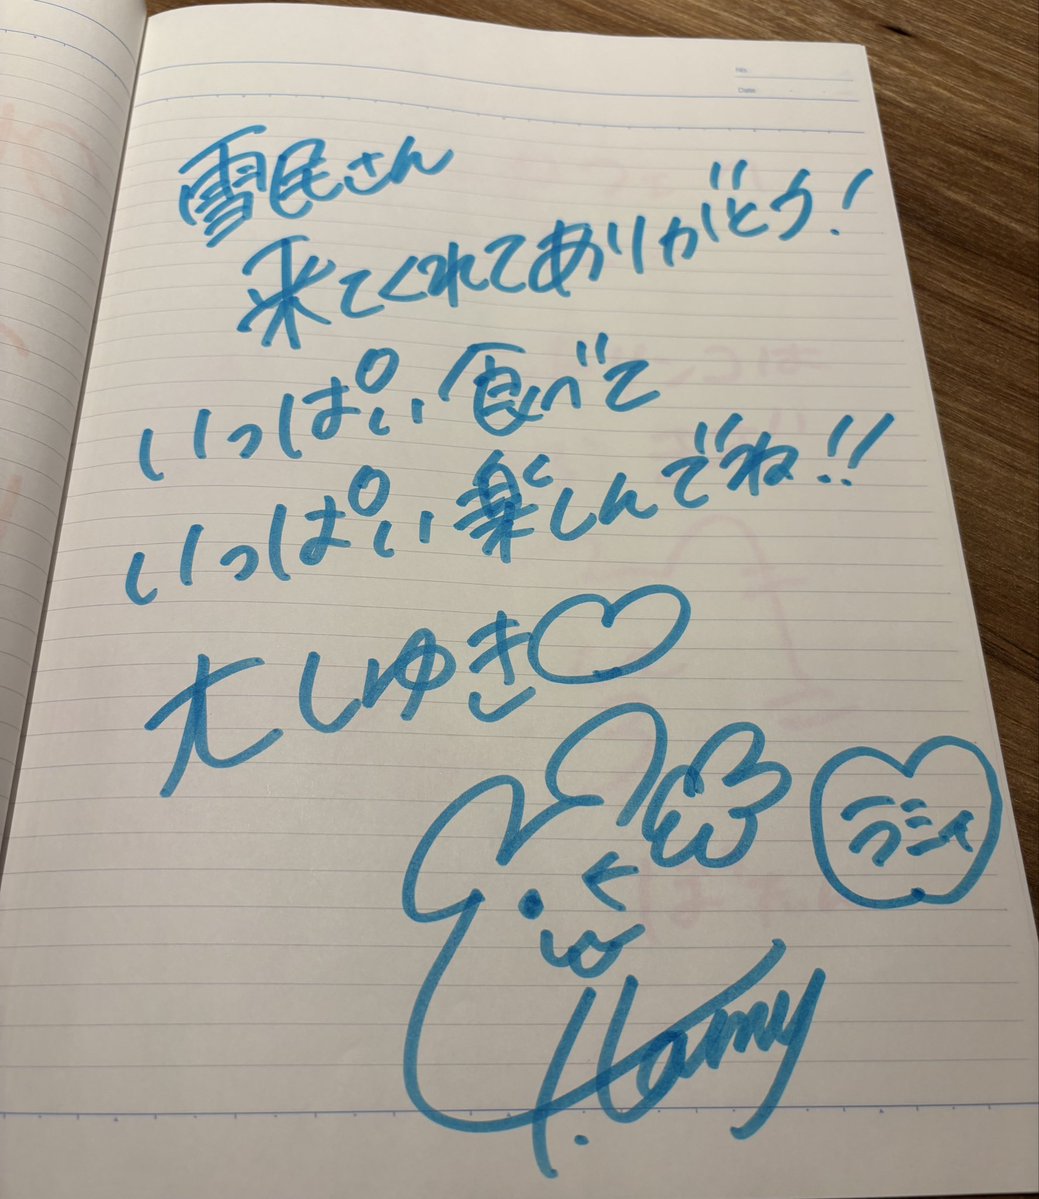 No.
Date
雪民さん
来てくれてありがとう！
いっぱい食べて
いっぱい楽しんでね!!
大しゆき♡